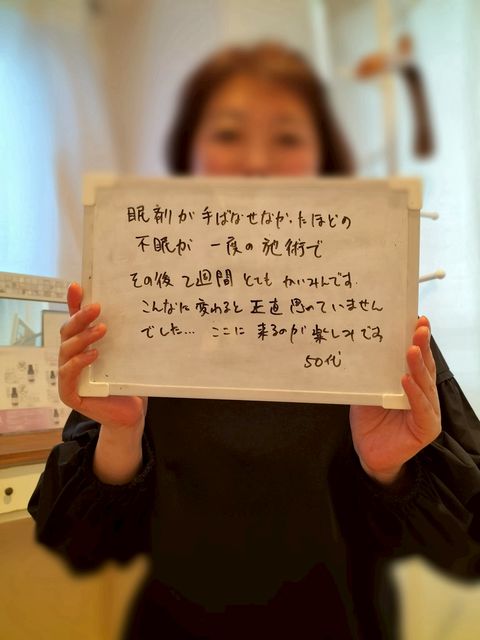 眠剤が手ばなせなかったほどの
不眠が 一度の施術で
その後2週間 とても かいみんです。
こんなに変わると 正直 思っていません
でした… ここに 来るのが 楽しみです
50代